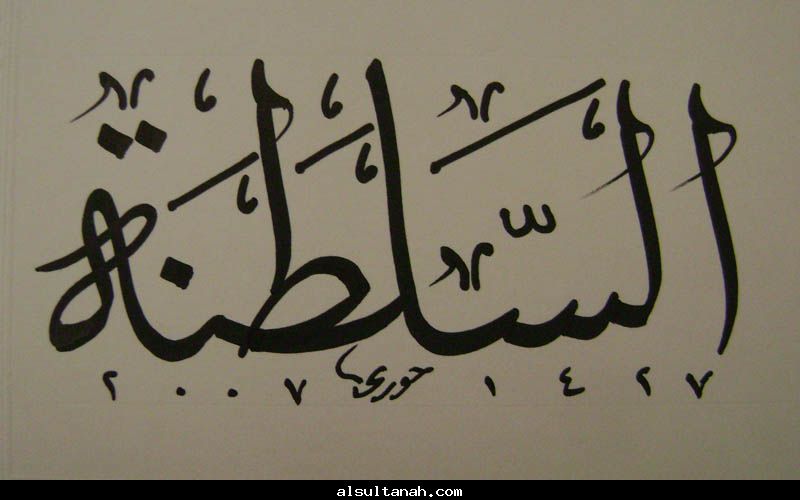 السَّلَطَنَة
١٤٢٧ حوري ٢٠٠٧
alsultanah.com